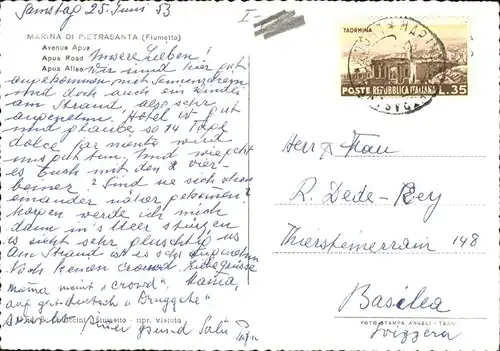 Samstag 25. Juni 53
I
MARINA DI PIETRASANTA (Fiumetto)
Avenue Apua
Apua Road
Apua Allee
Unsere Lieben!
Wir sind hier gut
angekommen mit Sonnenschein
und doch auch ein Windli
am Strand, also sehr
angenehm. Hotel ist gut
und glaube, so 14 Tage
dolce far niente wird
uns gut tun. Und wie geht
es Euch mit den 2 vier-
beiner? Sind sie sich schon
einander näher gekommen?
Morgen werde ich mich
dann in's Meer stürzen
es sieht sehr gluschtig aus
Am Strand ist es sehr angenehm
Noch keinen crowd. Liebe Grüsse
Mama meint "crowd", Mama,
auf gut deutsch
ripr. vietata
TAORMINA
POSTE REPUBBLICA ITALIANA L. 35
Herr & Frau
R. Dede-Rey
Thiersteinerrain 148
Basilea
FOTOSTAMPA ANGELI - TERNI
Svizzera